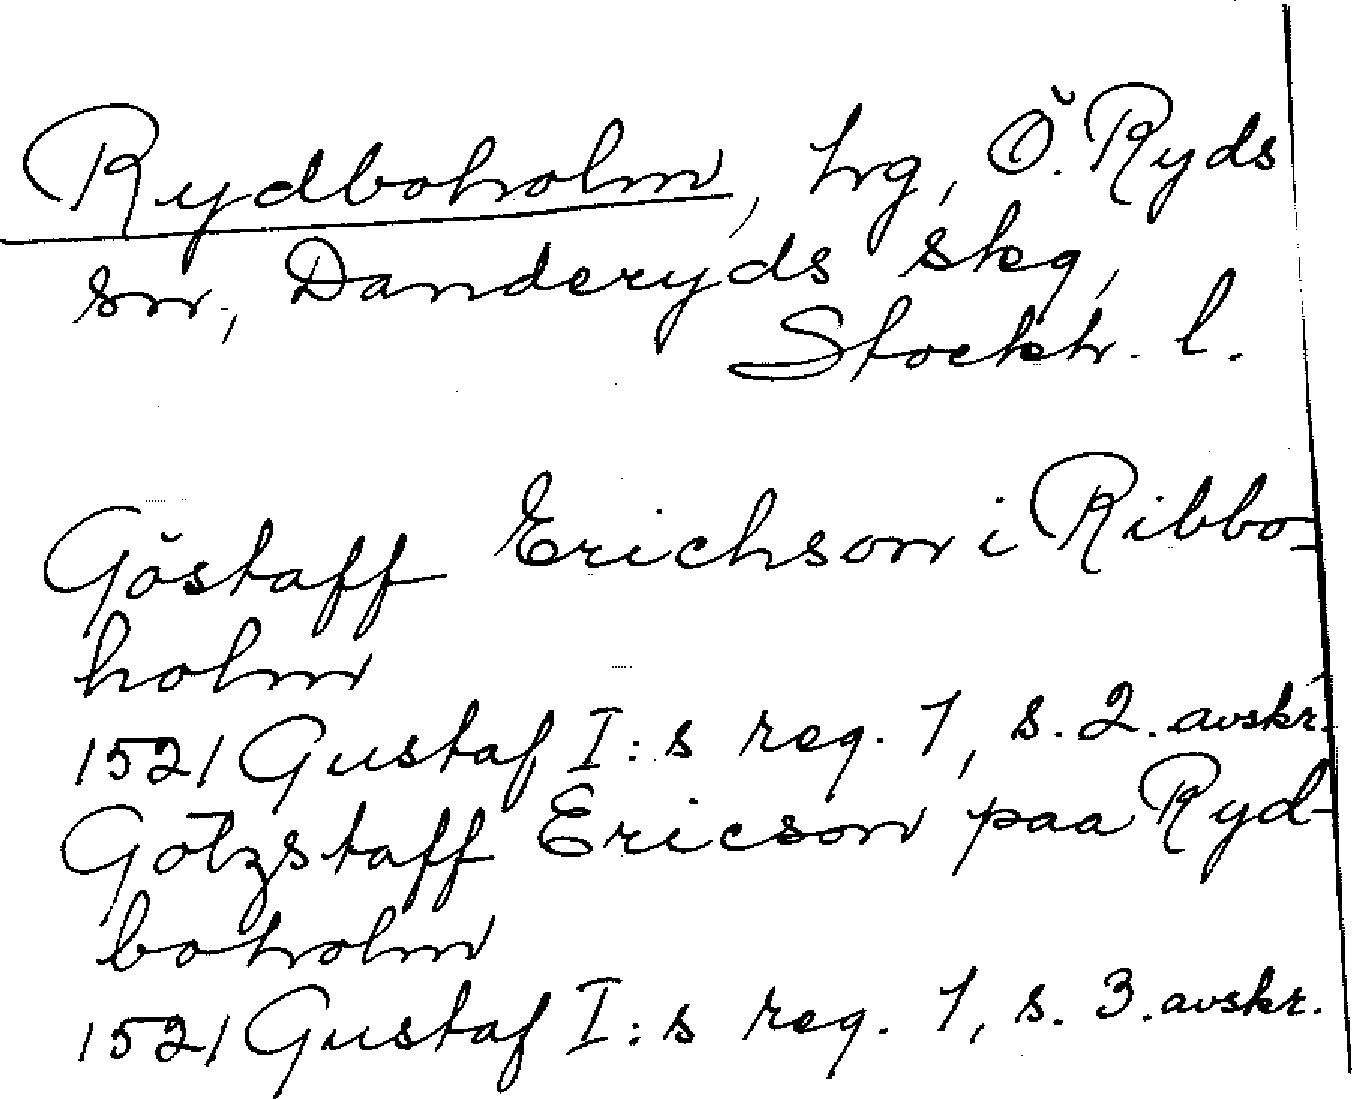 Rydboholm, hg, Ö. Ryds
sn, Danderyds skg,
Stockh. l.
Göstaff Erichson i Ribbo-
holm
1521 Gustaf I:s reg. 1, s. 2. avskr.
Götzstaff Ericson paa Ryd-
boholm
1521 Gustaf I:s reg. 1, s. 3. avskr.